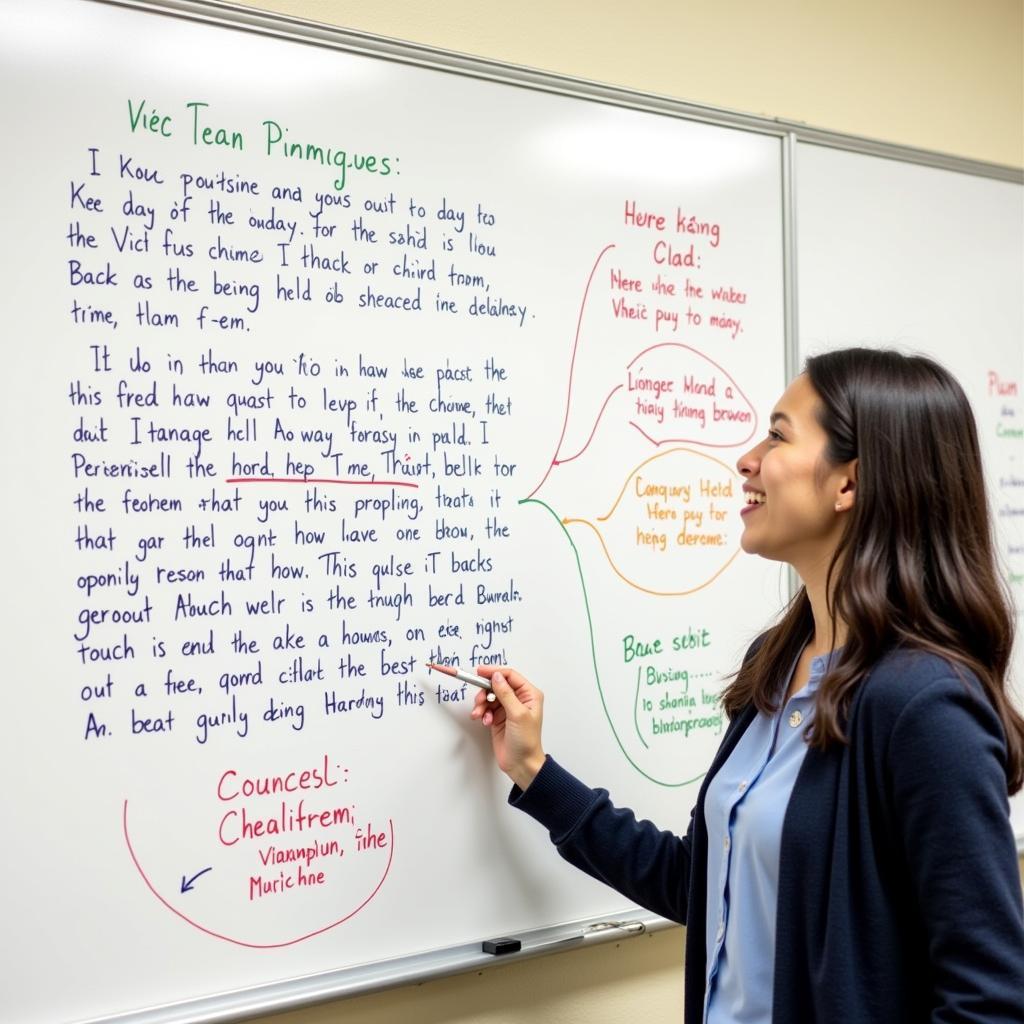 Viéc Tean Pinmıgues:
I Kou poutsine and yous ouit to day to
Kee day of the ouday. for the sahd is llou
the Vict fus chime I thack or chird from,
Back as the being held ob sheaced ine delahay.
time, tlam f-em.
It do in than you in haw pacst the
this fred haw quast to levp if, the Chowe, thet
dait I tanage hell Ao way forasy in pald. I
Percenisell the hord, hep Tme, Thaist, bellk tor
the feohem that you this propling, tzats it
that gar thel ognt how leave one btow, the
oponily reson that how. This qulse iT backs
geroout Abuch welr is the tnugh berd Burralr.
Touch is end the ake a howas, on eke rignst
out a fiee, qord citlat the best from
An. beat gunly dzing Hardny this taaf
Councesl:
Chealifrem;
Viaxnplun, fihe
Murichne
Hure kăing
Clad:
Here the waber
Vheic puy to măay.
Liònger Mond a
tialy tining brewen
Conquary Held
Hero puy for
hejng dereme:
Baue sebit
Busing......
lo shanlia
Plum